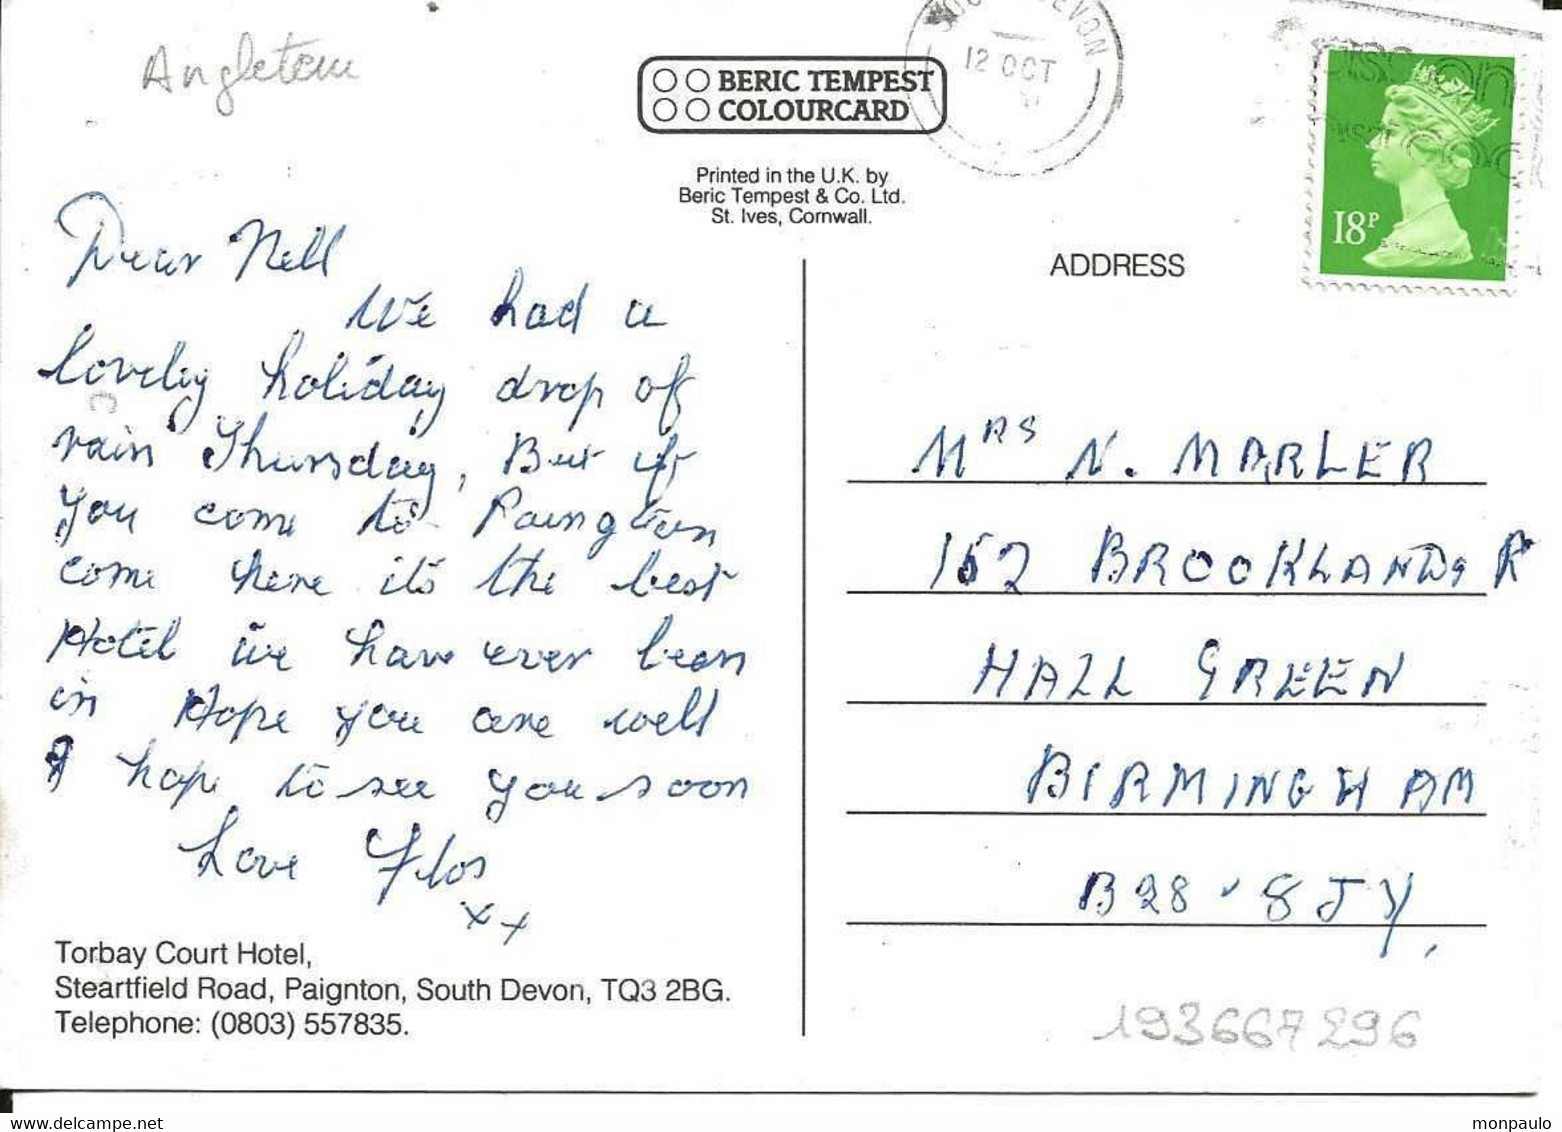 Angleterre
BERIC TEMPEST
COLOURCARD
Printed in the U.K. by
Beric Tempest & Co. Ltd.
St. Ives, Cornwall.
DEVON
12 OCT
18P
Dear Nell
We had a
lovely holiday drop of
rain Thursday, But if
you come to Paington
come here its the best
Hotel we have ever been
in Hope you are well
I hope to see you soon
Love Flos
xx
Torbay Court Hotel,
Steartfield Road, Paignton, South Devon, TQ3 2BG.
Telephone: (0803) 557835.
ADDRESS
MRS N. MARLER
152 BROOKLANDS R
HALL GREEN
BIRMINGHAM
B28 8JY,
193667296
www.delcampe.net
monpaulo